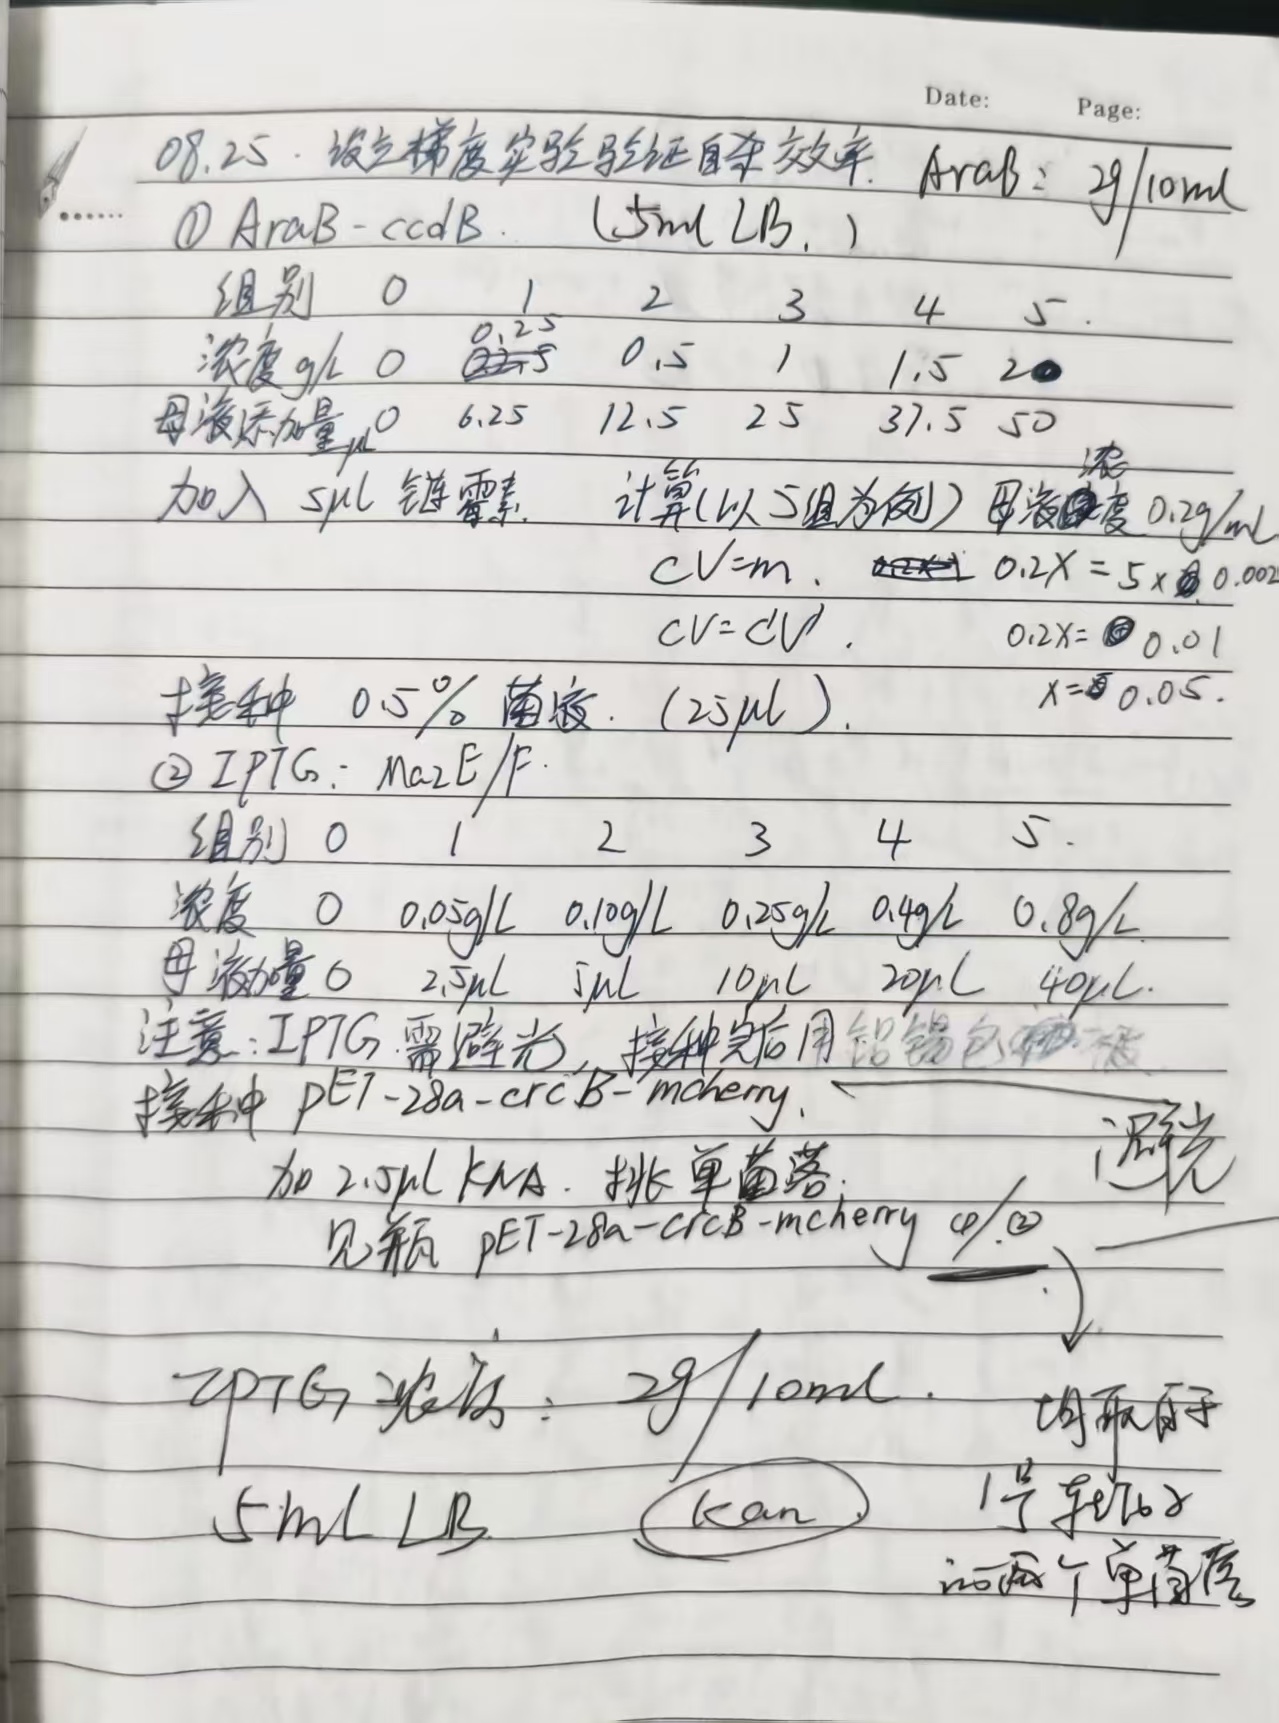 Date: Page:
08.25. 设立梯度实验验证自杀效率. AraB: 2g/10ml
① AraB-ccdB. (5ml LB.)
组别 0 1 2 3 4 5.
浓度g/L 0 0.25 0.5 1 1.5 2
母液添加量μL 0 6.25 12.5 25 37.5 50
加入 5μl 链霉素. 计算(以5组为例) 母液浓度 0.2g/mL
cV=m. 0.2X=5x 0.002
cV=c'V'. 0.2X= 0.01
x= 0.05.
接种 0.5% 菌液. (25μl).
② IPTG: MazE/F.
组别 0 1 2 3 4 5.
浓度 0 0.05g/L 0.10g/L 0.25g/L 0.4g/L 0.8g/L
母液加量 0 2.5μL 5μL 10μL 20μL 40μL.
注意: IPTG 需避光, 接种完后用铝锡包
接种 pET-28a-crcB-mcherry.
避光
加 2.5μl KNA. 挑单菌落.
见瓶 pET-28a-crcB-mcherry ①/②
IPTG 浓度: 2g/10ml.
均取自于
1号转化
两个单菌落
5ml LB Kan